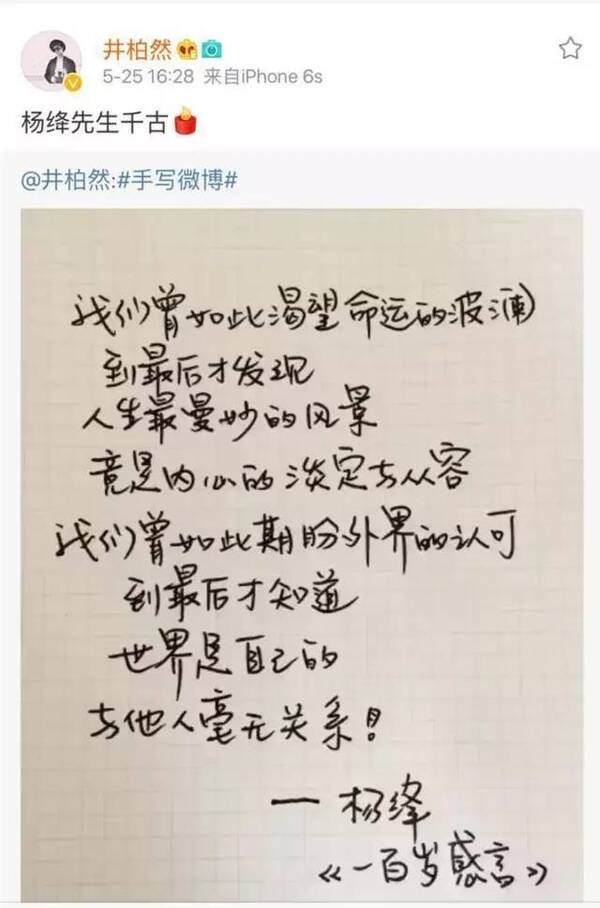 井柏然
5-25 16:28 来自iPhone 6s
杨绛先生千古
@井柏然:#手写微博#
我们曾如此渴望命运的波澜
到最后才发现
人生最曼妙的风景
竟是内心的淡定与从容
我们曾如此期盼外界的认可
到最后才知道
世界是自己的
与他人毫无关系！
— 杨绛
《一百岁感言》